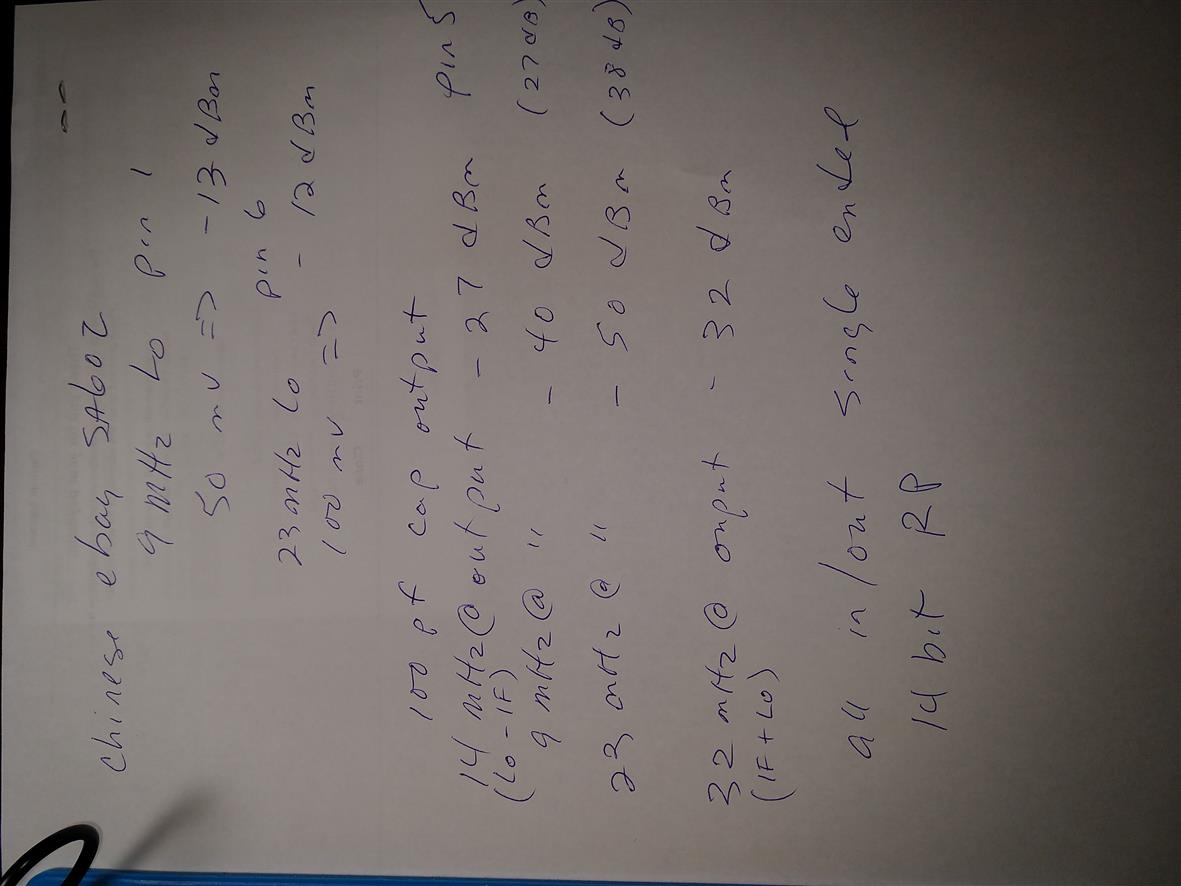 chinese ebay SA602
9 mHz LO pin 1
50 mv => -13 dBm
23 mHz LO pin 6
100 mv => - 12 dBm
100 pf cap output
14 mHz @ output - 27 dBm pin 5
(LO-IF)
9 mHz @ " - 40 dBm (27 dB)
23 mHz @ " - 50 dBm (38 dB)
32 mHz @ onput - 32 dBm
(IF+LO)
all in/out single ended
14 bit RP